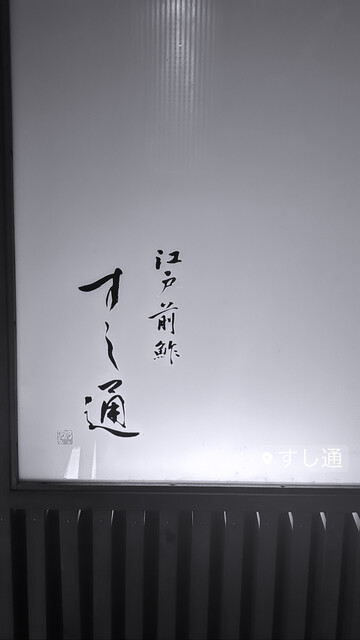 江戸前鮓
すし通
すし通